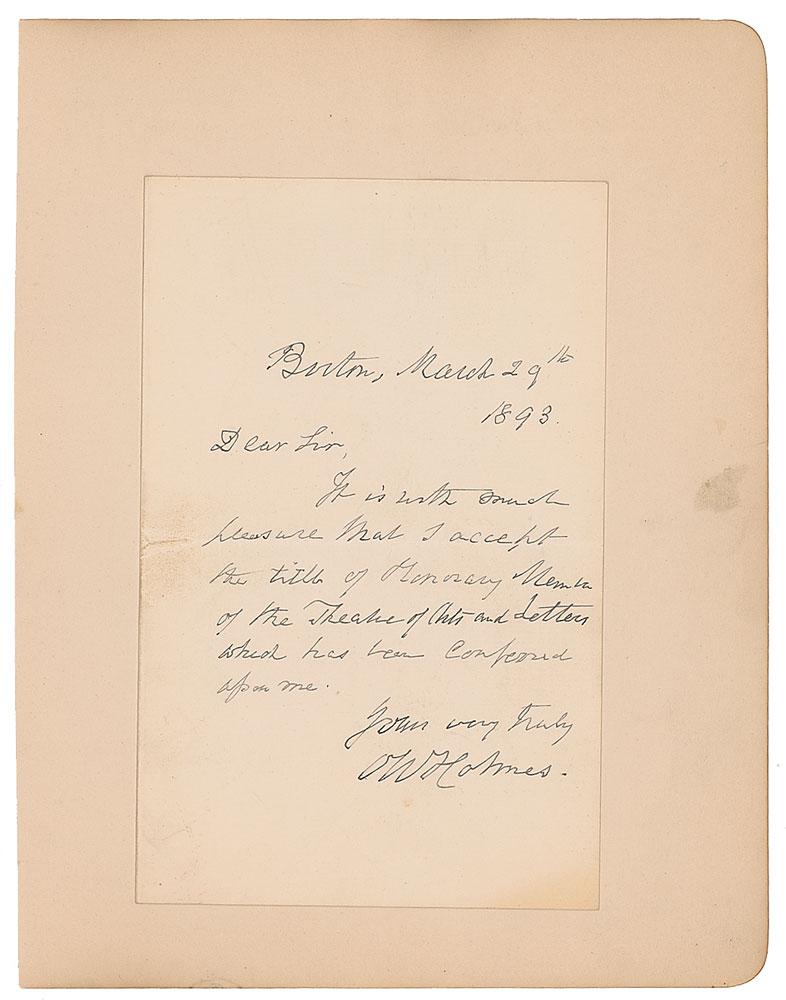 Boston, March 29th
1893.
Dear Sir,
It is with much
pleasure that I accept
the title of Honorary Member
of the Theatre of Arts and Letters
which has been conferred
upon me.
Yours very truly
O W Holmes.